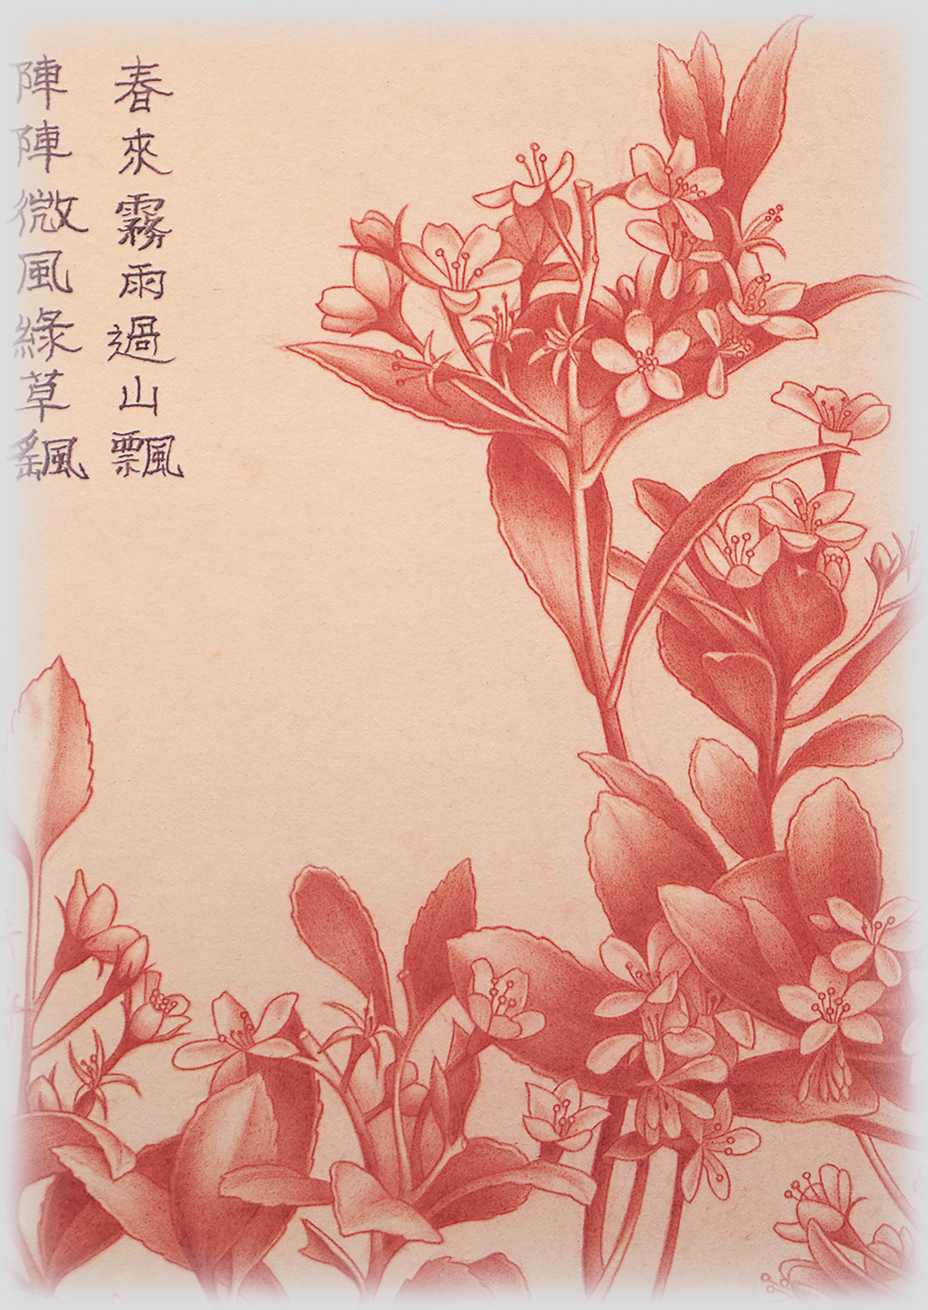 春來霧雨過山飄
陣陣微風綠草颻